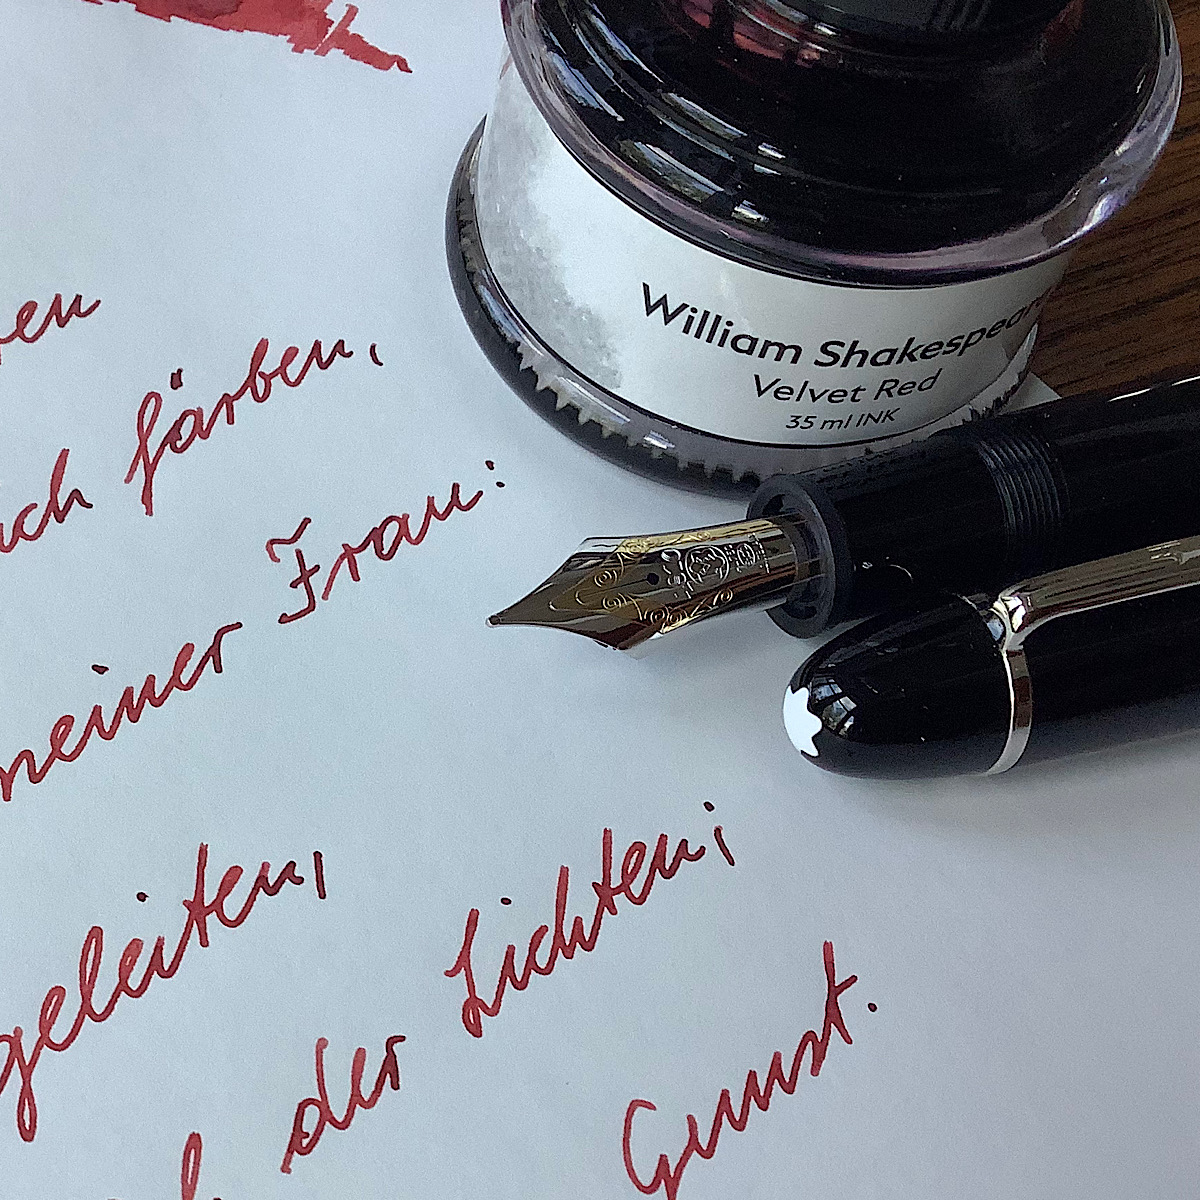 färben,
meiner Frau:
geleiten,
der Lichten;
Gunst.
William Shakespear
Velvet Red
35 ml INK